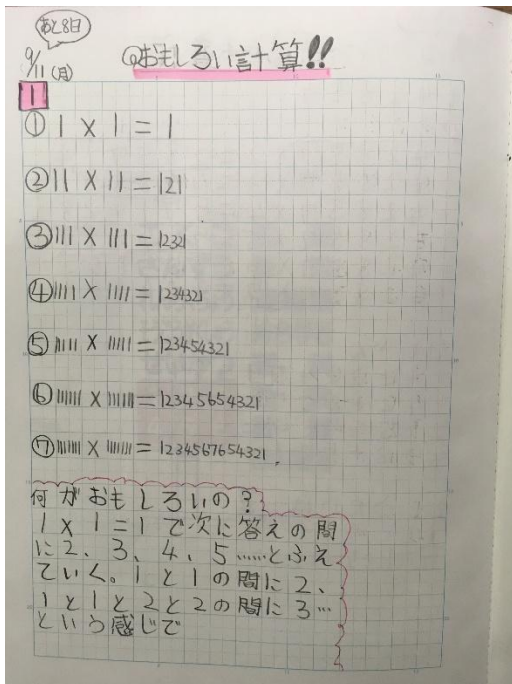 あと8日
9/11(月)
◎おもしろい計算!!
1
① 1 × 1 = 1
② 11 × 11 = 121
③ 111 × 111 = 12321
④ 1111 × 1111 = 1234321
⑤ 11111 × 11111 = 123454321
⑥ 111111 × 111111 = 12345654321
⑦ 1111111 × 1111111 = 1234567654321
何がおもしろいの?
1×1=1で次に答えの間
に2、3、4、5……とふえ
ていく。1と1の間に2、
1と1と2と2の間に3…
という感じで